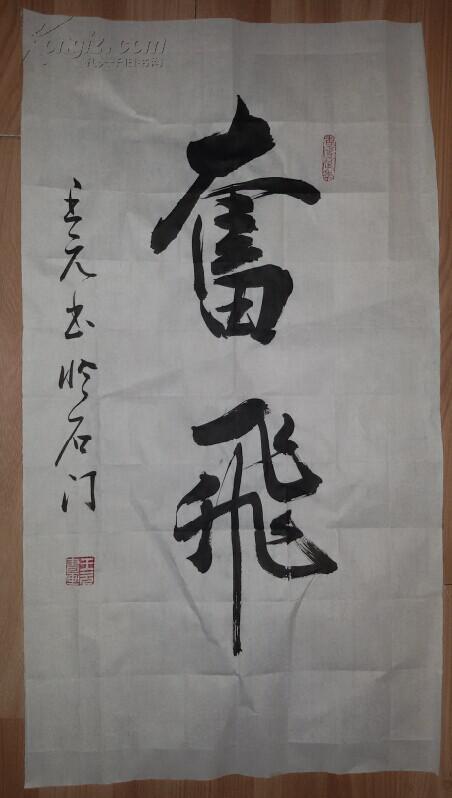 奮飛
王元书於石门
Kongfz.com
孔夫子旧书网